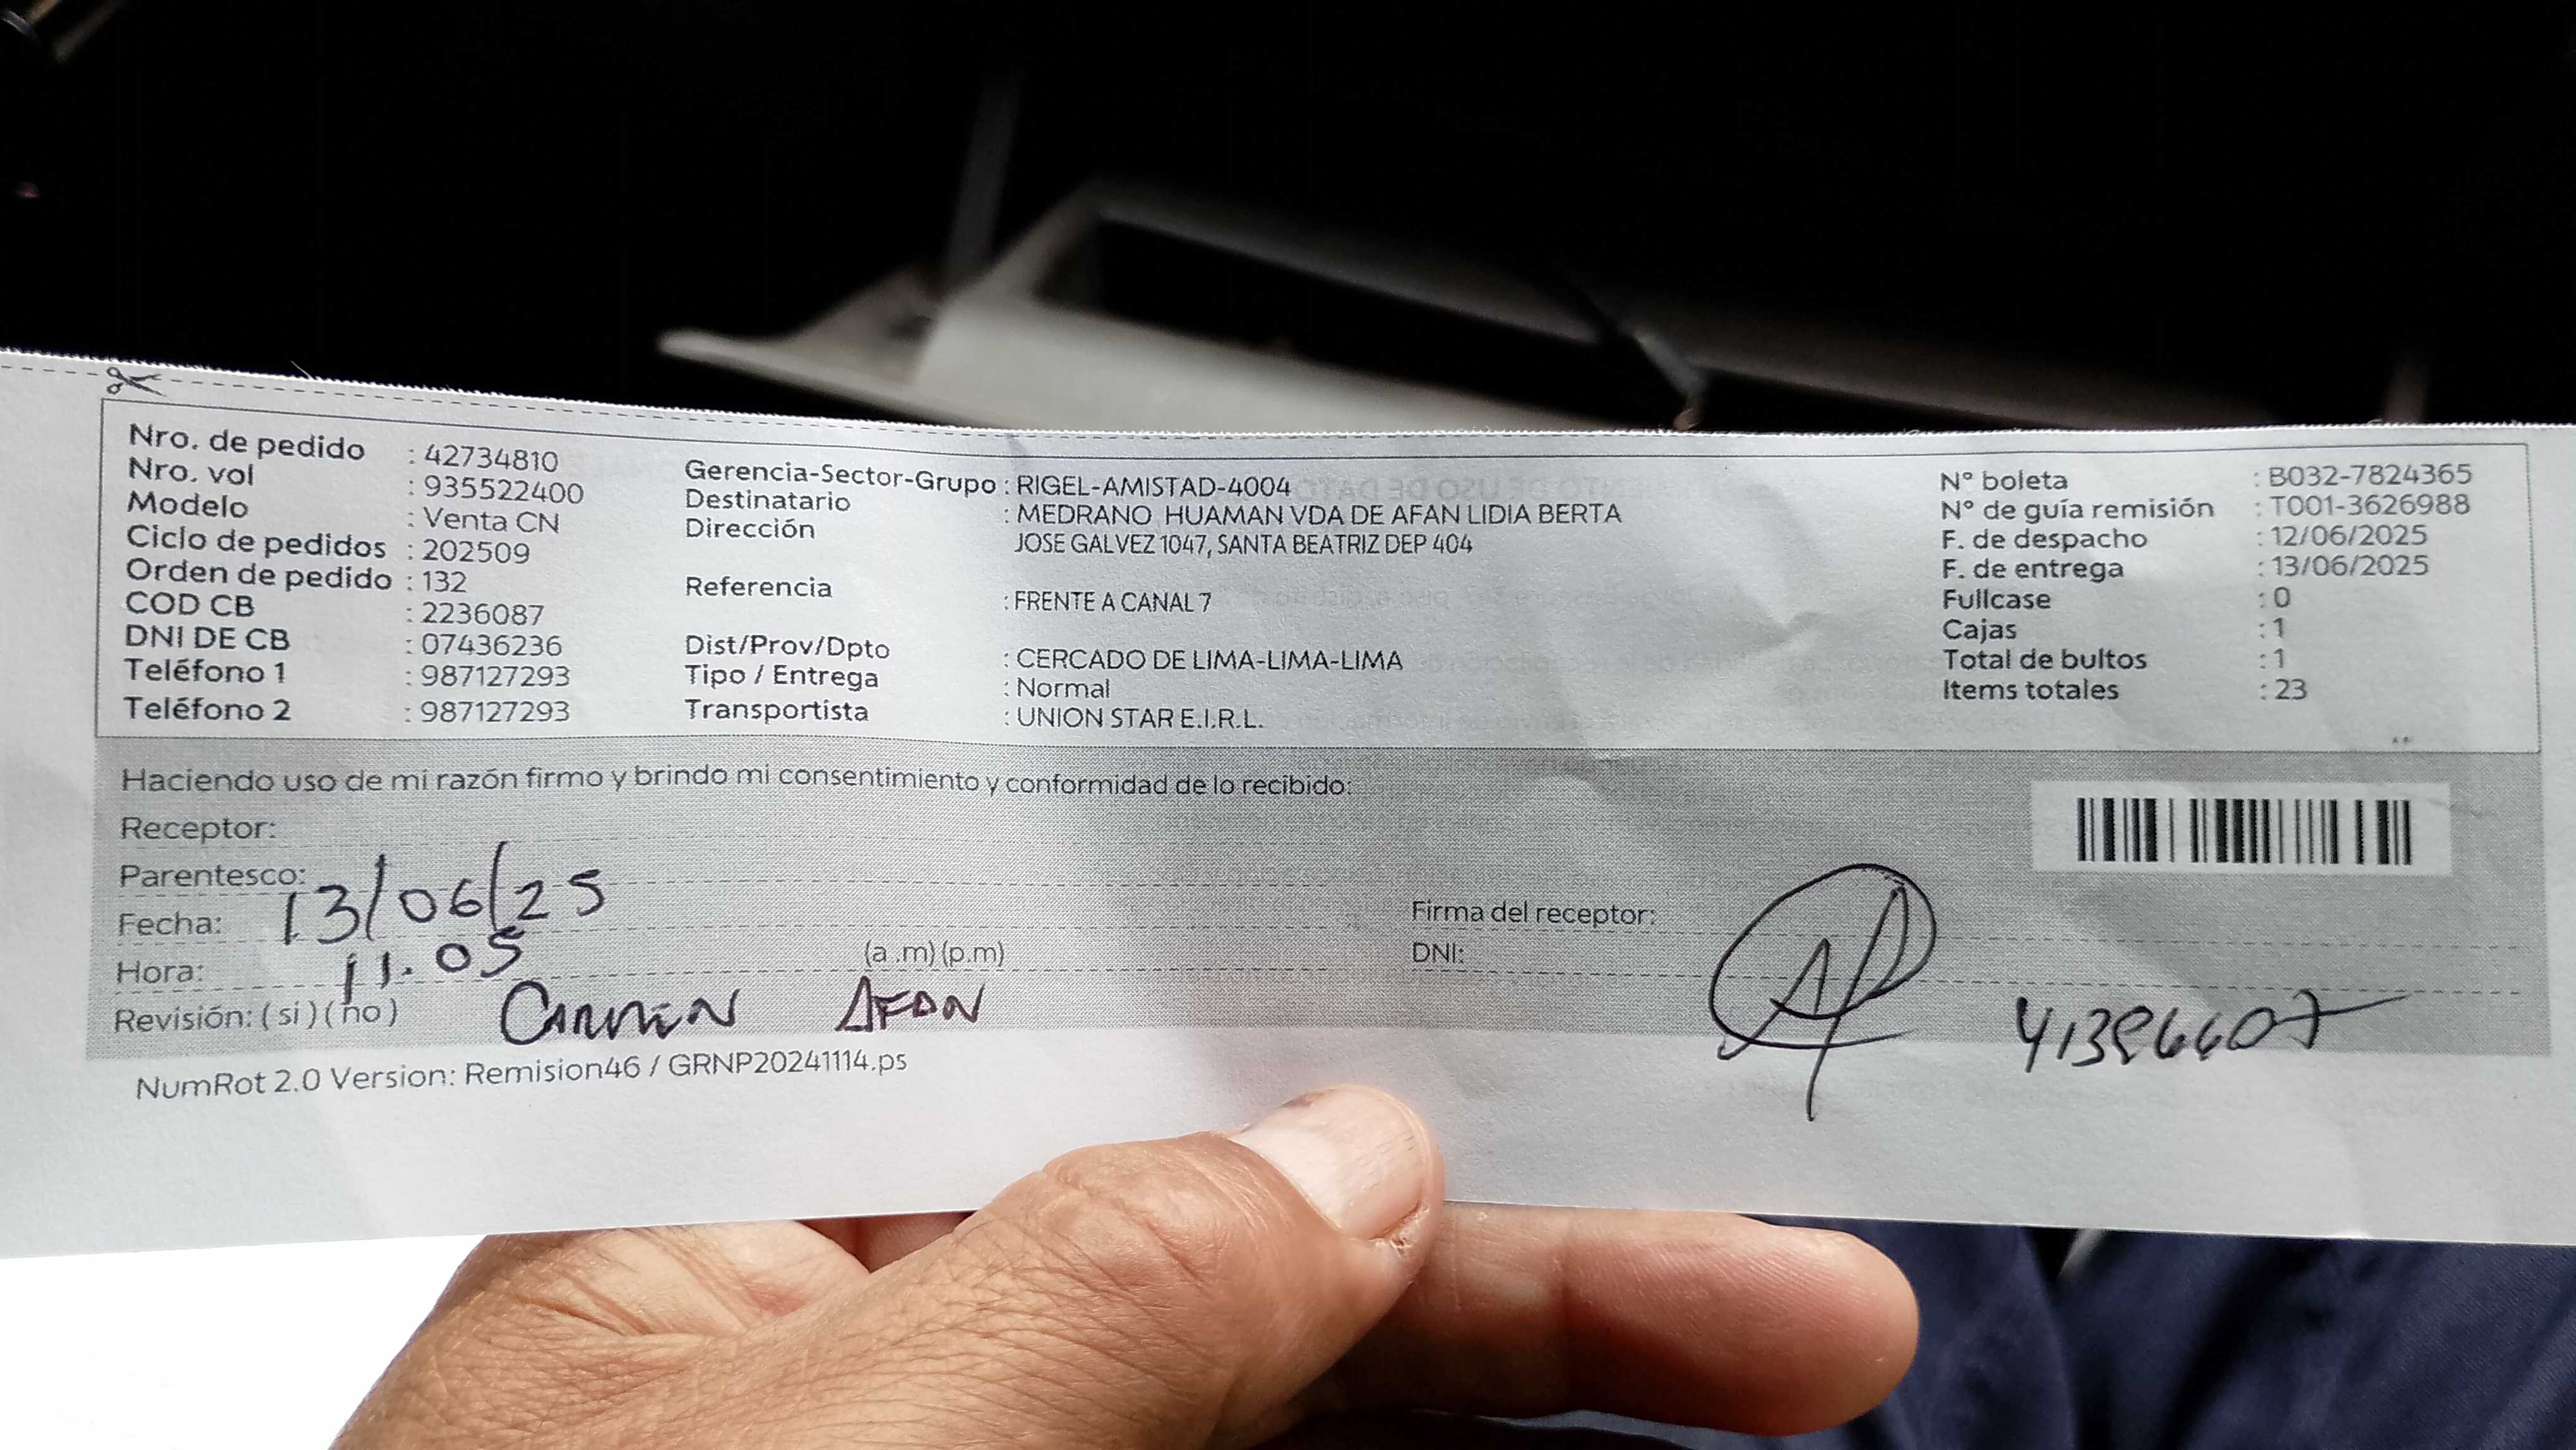 Nro. de pedido : 42734810
Nro. vol : 935522400
Modelo : Venta CN
Ciclo de pedidos : 202509
Orden de pedido : 132
COD CB : 2236087
DNI DE CB : 07436236
Teléfono 1 : 987127293
Teléfono 2 : 987127293
Gerencia-Sector-Grupo : RIGEL-AMISTAD-4004
Destinatario : MEDRANO HUAMAN VDA DE AFAN LIDIA BERTA
Dirección JOSE GALVEZ 1047, SANTA BEATRIZ DEP 404
Referencia : FRENTE A CANAL 7
Dist/Prov/Dpto : CERCADO DE LIMA-LIMA-LIMA
Tipo / Entrega : Normal
Transportista : UNION STAR E.I.R.L.
N° boleta : B032-7824365
N° de guía remisión : T001-3626988
F. de despacho : 12/06/2025
F. de entrega : 13/06/2025
Fullcase : 0
Cajas : 1
Total de bultos : 1
Items totales : 23
Haciendo uso de mi razón firmo y brindo mi consentimiento y conformidad de lo recibido:
Receptor:
Parentesco:
Fecha: 13/06/25
Hora: 11.05 (a .m) (p.m)
Revisión: ( si ) ( no ) CARMEN AFAN
Firma del receptor:
DNI:
NumRot 2.0 Version: Remision46 / GRNP20241114.ps